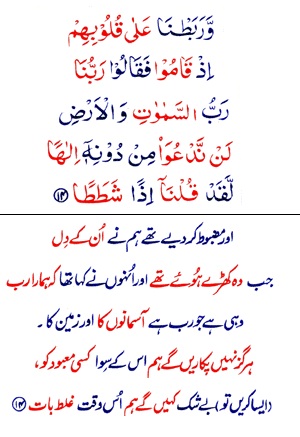 وَّرَبَطْنَا عَلٰى قُلُوْبِهِمْ
اِذْ قَامُوْا فَقَالُوْا رَبُّنَا
رَبُّ السَّمٰوٰتِ وَالْاَرْضِ
لَنْ نَّدْعُوَا۟ مِنْ دُوْنِهٖۤ اِلٰهًا
لَّقَدْ قُلْنَاۤ اِذًا شَطَطًا ﴿۱۴﴾
اور مضبوط کر دیے تھے ہم نے اُن کے دِل
جب وہ کھڑے ہُوئے تھے اور اُنہوں نے کہا تھا کہ ہمارا رب
وہی ہے جو رب ہے آسمانوں کا اور زمین کا ۔
ہرگز نہیں پکاریں گے ہم اس کے سِوا کسی معبود کو ،
(ایسا کریں تو) بے شک کہیں گے ہم اُس وقت غلط بات ﴿۱۴﴾